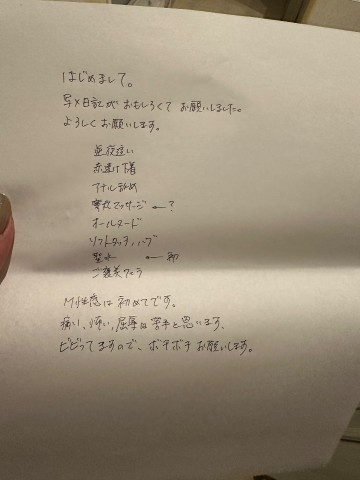 はじめまして。
写メ日記が おもしろくて お願いしました。
よろしくお願いします。
亜夜這い
赤透け下着
アナル舐め
睾丸マッサージ ← ?
オールヌード
ソフトタッチ/ハグ
聖水 ← 初
ご褒美フェラ
M性感は初めてです。
痛い、怖い、屈辱は苦手と思います、
ビビってますので、ボチボチお願いします。